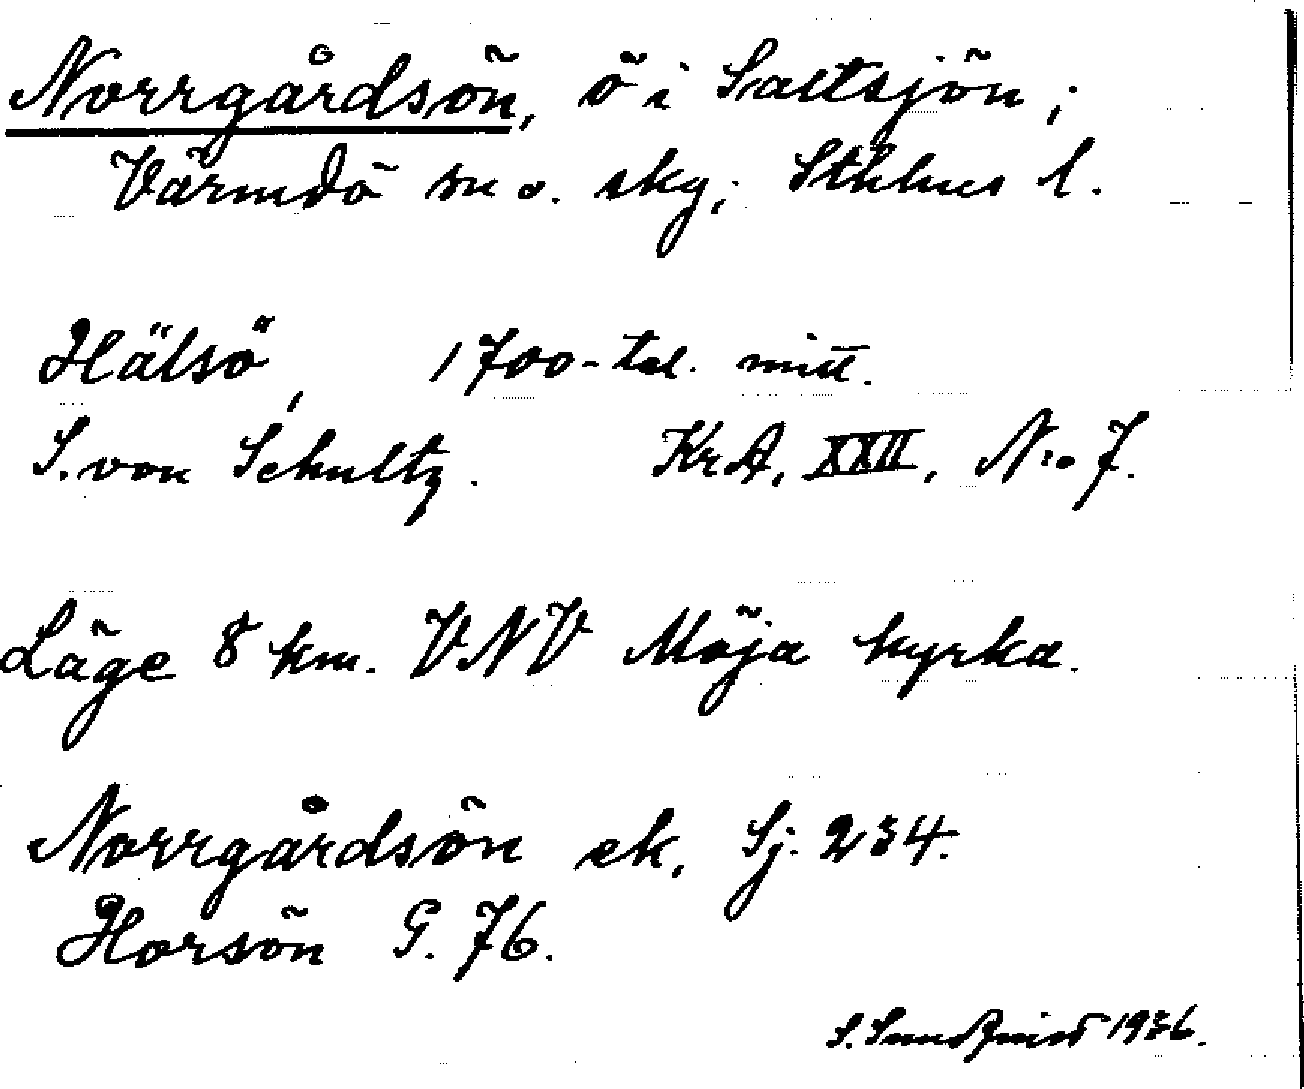 Norrgårdsön, ö i Saltsjön;
Värmdö sn o. skg; Sthlms l.
Hälsö, 1700-tal. mitt.
S. von Schultz. KrA, XXII, N:o 7.
Läge 8 km. VNV Möja kyrka.
Norrgårdsön ek. Sj. 234.
Horsön G. 76.
S. Sundqvist 1936.